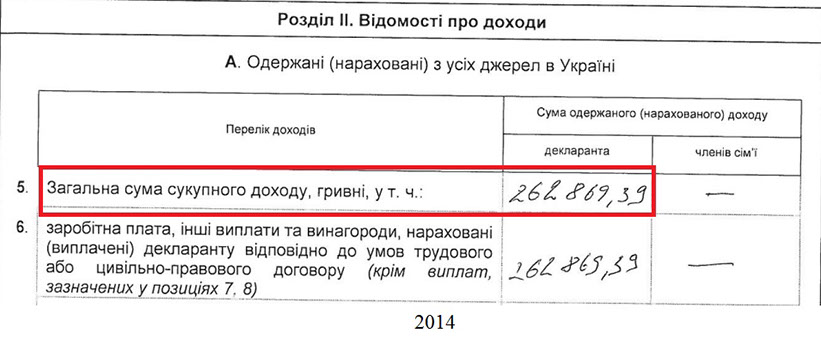 Розділ II. Відомості про доходи
А. Одержані (нараховані) з усіх джерел в Україні
Перелік доходів
Сума одержаного (нарахованого) доходу
декларанта
членів сім'ї
5. Загальна сума сукупного доходу, гривні, у т. ч.: 262 869,39 —
6. заробітна плата, інші виплати та винагороди, нараховані
(виплачені) декларанту відповідно до умов трудового
або цивільно-правового договору (крім виплат,
зазначених у позиціях 7, 8)
262 869,39 —
2014